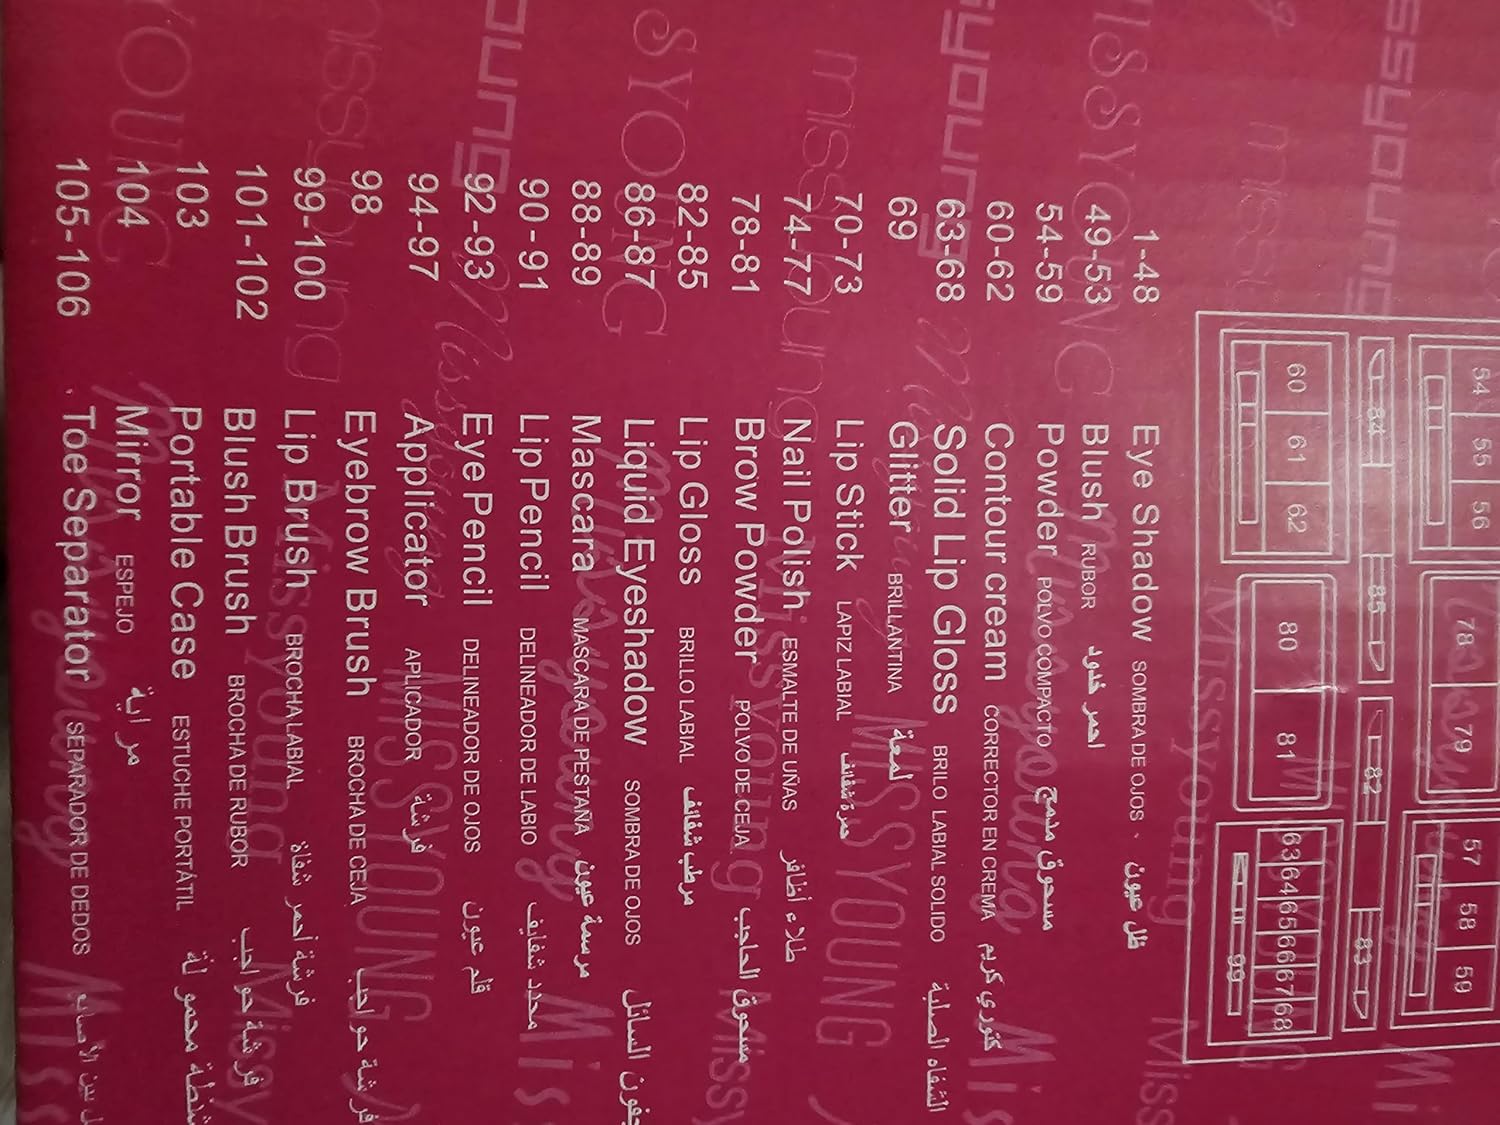 1-48 Eye Shadow SOMBRA DE OJOS ظل عيون
49-53 Blush RUBOR احمر خدود
54-59 Powder POLVO COMPACTO مسحوق مدمج
60-62 Contour cream CORRECTOR EN CREMA كنتوري كريم
63-68 Solid Lip Gloss BRILO LABIAL SOLIDO الشفاه الصلبة
69 Glitter BRILLANTINA لمعة
70-73 Lip Stick LAPIZ LABIAL حمرة شفائف
74-77 Nail Polish ESMALTE DE UÑAS طلاء أظافر
78-81 Brow Powder POLVO DE CEJA مسحوق الحاجب
82-85 Lip Gloss BRILLO LABIAL مرطب شفائف
86-87 Liquid Eyeshadow SOMBRA DE OJOS السائل
88-89 Mascara MASCARA DE PESTAÑA مرسمة عيون
90-91 Lip Pencil DELINEADOR DE LABIO محدد شفايف
92-93 Eye Pencil DELINEADOR DE OJOS قلم عيون
94-97 Applicator APLICADOR فرشة
98 Eyebrow Brush BROCHA DE CEJA فرشة حواجب
99-100 Lip Brush BROCHA LABIAL فرشة أحمر شفاة
101-102 Blush Brush BROCHA DE RUBOR فرشة حواجب
103 Portable Case ESTUCHE PORTÁTIL شنطة محمولة
104 Mirror ESPEJO مراية
105-106 Toe Separator SEPARADOR DE DEDOS بين الأصابع
54 55 56 78 79 57 58 59
84 85 82 83
60 61 62 80 81 63 64 65 66 67 68
99
missyoung
MISSYOUNG
Missyoung